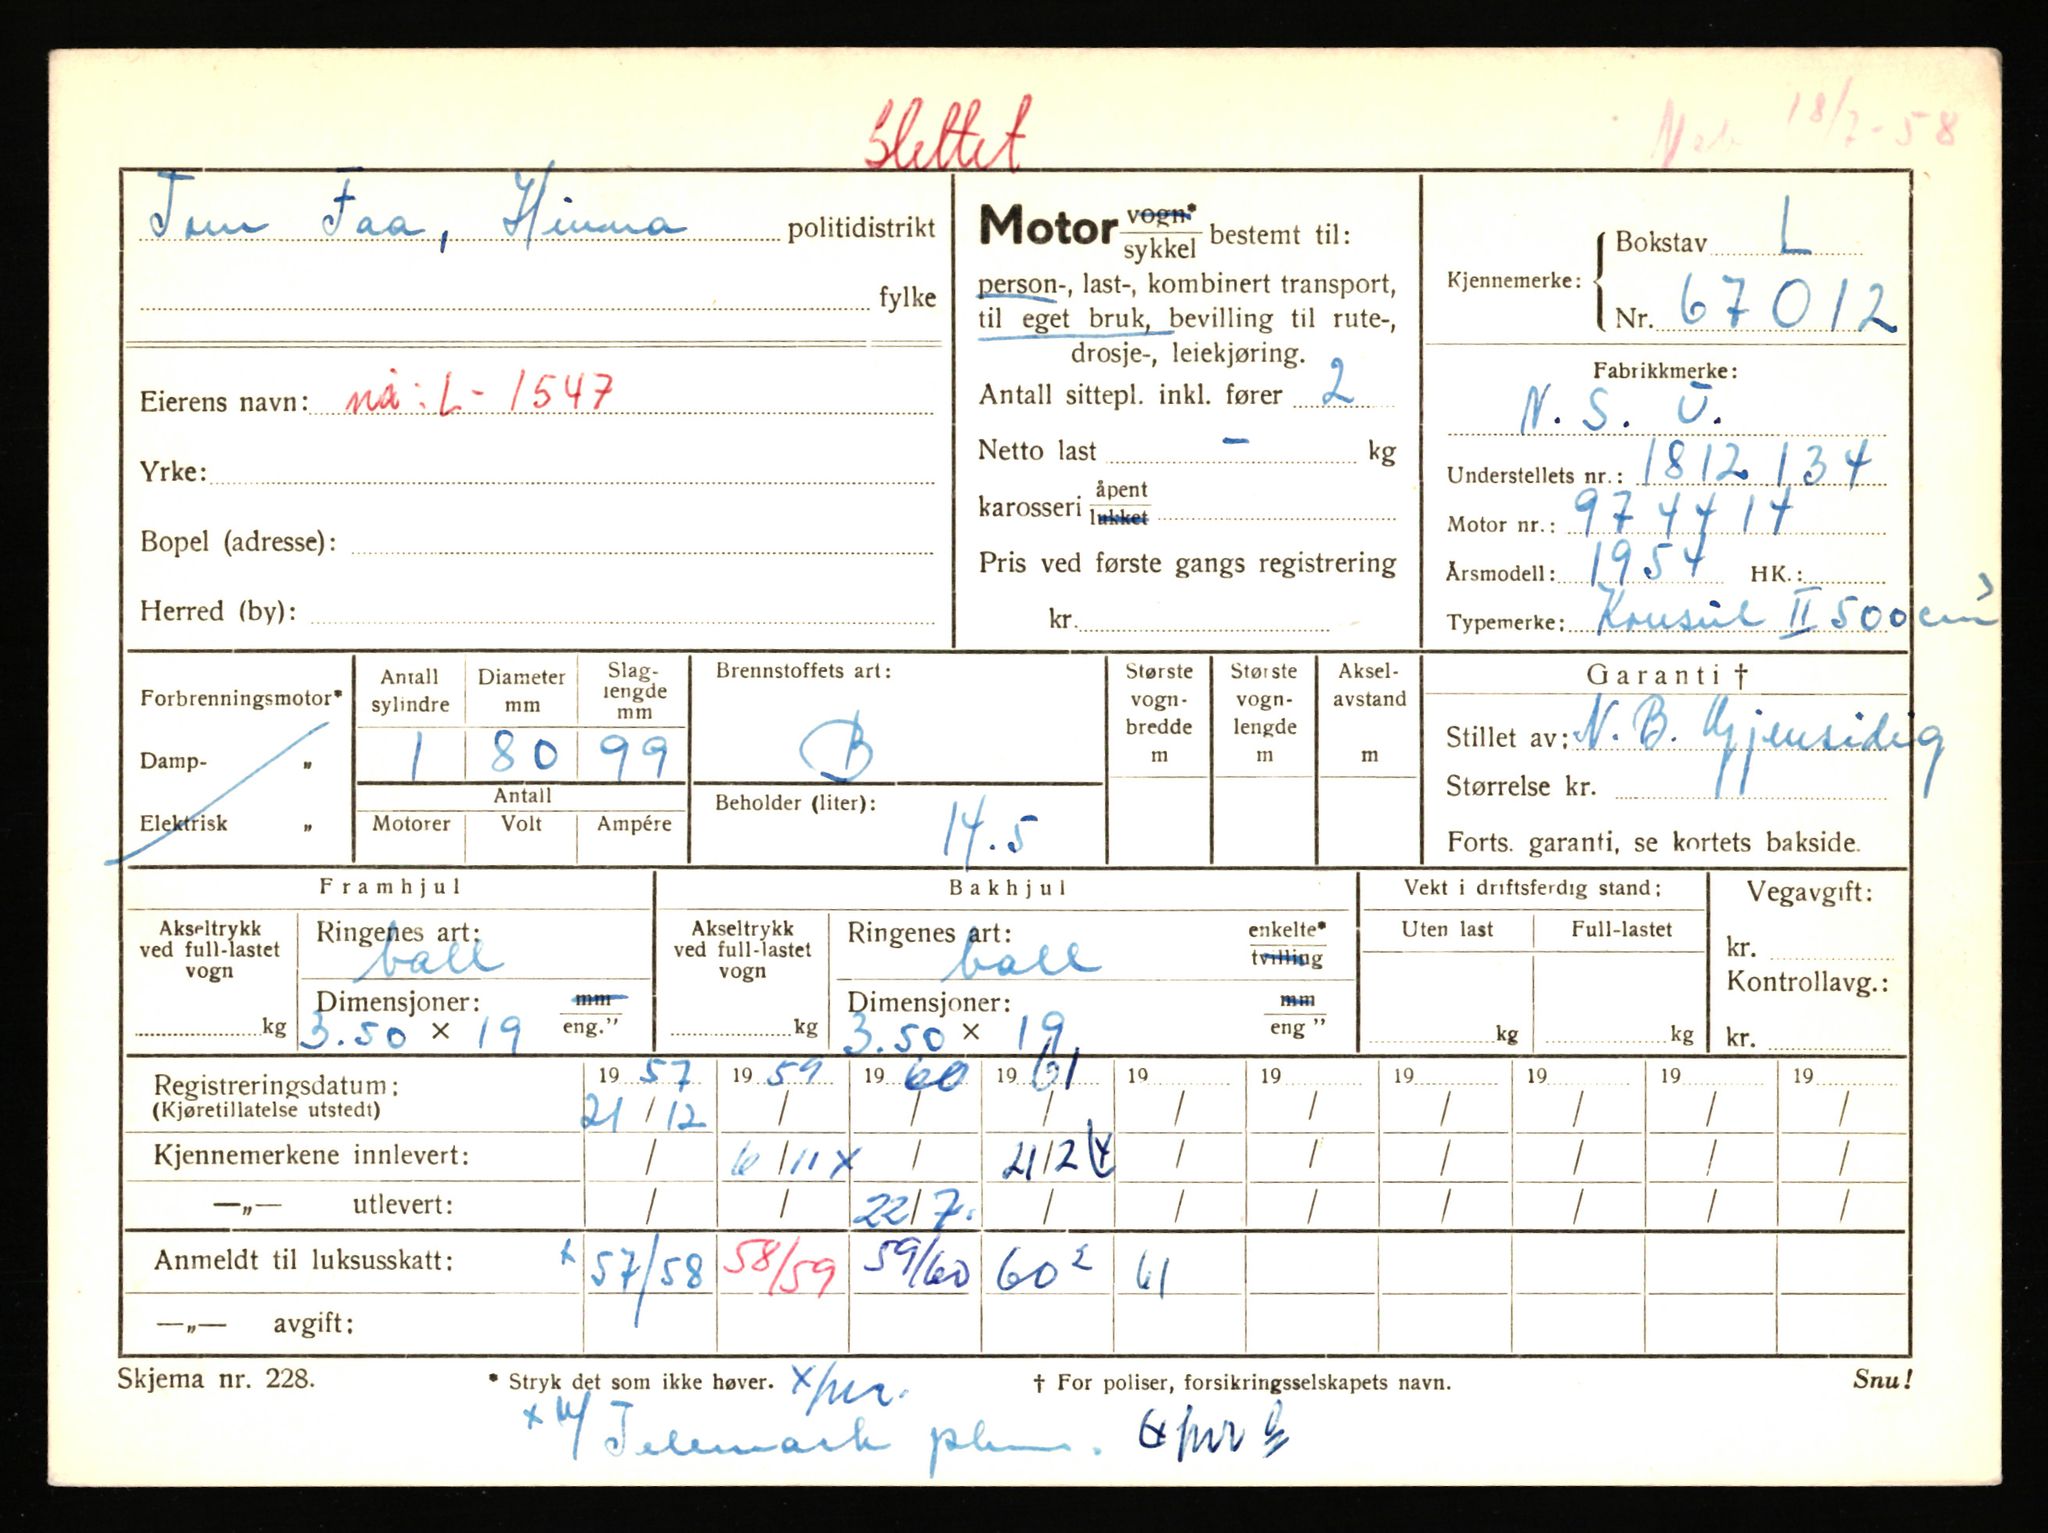 Slettet
18/7-58
Tom Faa, Hinna politidistrikt
fylke
Eierens navn: nå: L-1547
Yrke:
Bopel (adresse):
Herred (by):
Motor vogn* sykkel bestemt til:
person-, last-, kombinert transport,
til eget bruk, bevilling til rute-,
drosje-, leiekjøring.
Antall sittepl. inkl. fører 2
Netto last – kg
karosseri åpent lukket
Pris ved første gangs registrering
kr.
Kjennemerke: Bokstav L
Nr. 67012
Fabrikkmerke:
N. S. U.
Understellets nr.: 1812134
Motor nr.: 974414
Årsmodell: 1954 HK.:
Typemerke: Konsul II 500cm³
Forbrenningsmotor*
Damp- „
Elektrisk „
Antall sylindre Diameter mm Slag-lengde mm
1 80 99
Antall
Motorer Volt Ampére
Brennstoffets art:
B
Beholder (liter):
14.5
Største vogn-bredde m
Største vogn-lengde m
Aksel-avstand m
Garanti †
Stillet av: N. B. Gjensidig
Størrelse kr.
Forts. garanti, se kortets bakside.
Framhjul
Akseltrykk ved full-lastet vogn
kg
Ringenes art:
ball
Dimensjoner: mm eng."
3.50 × 19
Bakhjul
Akseltrykk ved full-lastet vogn
kg
Ringenes art: enkelte* tvilling
ball
Dimensjoner: mm eng "
3.50 × 19
Vekt i driftsferdig stand:
Uten last Full-lastet
kg kg
Vegavgift:
kr.
Kontrollavg.:
kr.
Registreringsdatum: 1957 1959 1960 1961 19 19 19 19 19 19
(Kjøretillatelse utstedt) 21/12 / / / / / / / / /
Kjennemerkene innlevert: / 6/11 x / 21/2 / / / / / /
—„— utlevert: / / 22/7. / / / / / / /
Anmeldt til luksusskatt: x 57/58 58/59 59/60 60² 61
—„— avgift:
Skjema nr. 228. * Stryk det som ikke høver. x/ † For poliser, forsikringsselskapets navn. Snu!
x Telemark